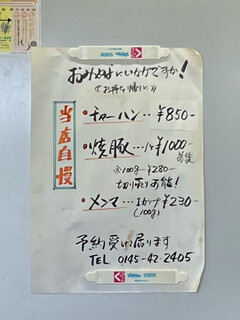 おみやげにいかがですか!
(お持ち帰りに)
当店自慢
・チャーハン…¥850-
・焼豚…1ヶ¥1000-
前後
※100g=¥280-
切り売り可能!
・メンマ…1カップ¥230-
(100g)
予約受けて居ります
TEL 0145-42-2405